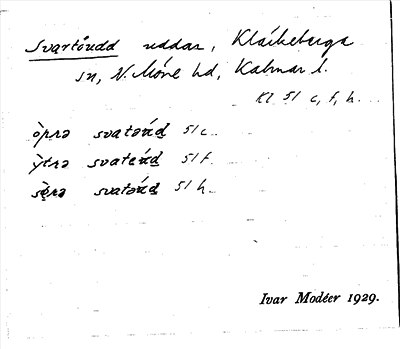 Svartöudd uddar, Kläckeberga
sn, N. Möre hd, Kalmar l.
Kl 51 c, f, h.
òprə svatəúd 51 c.
ỳtrə svatəúd 51 f.
svatəúd 51 h.
Ivar Modéer 1929.